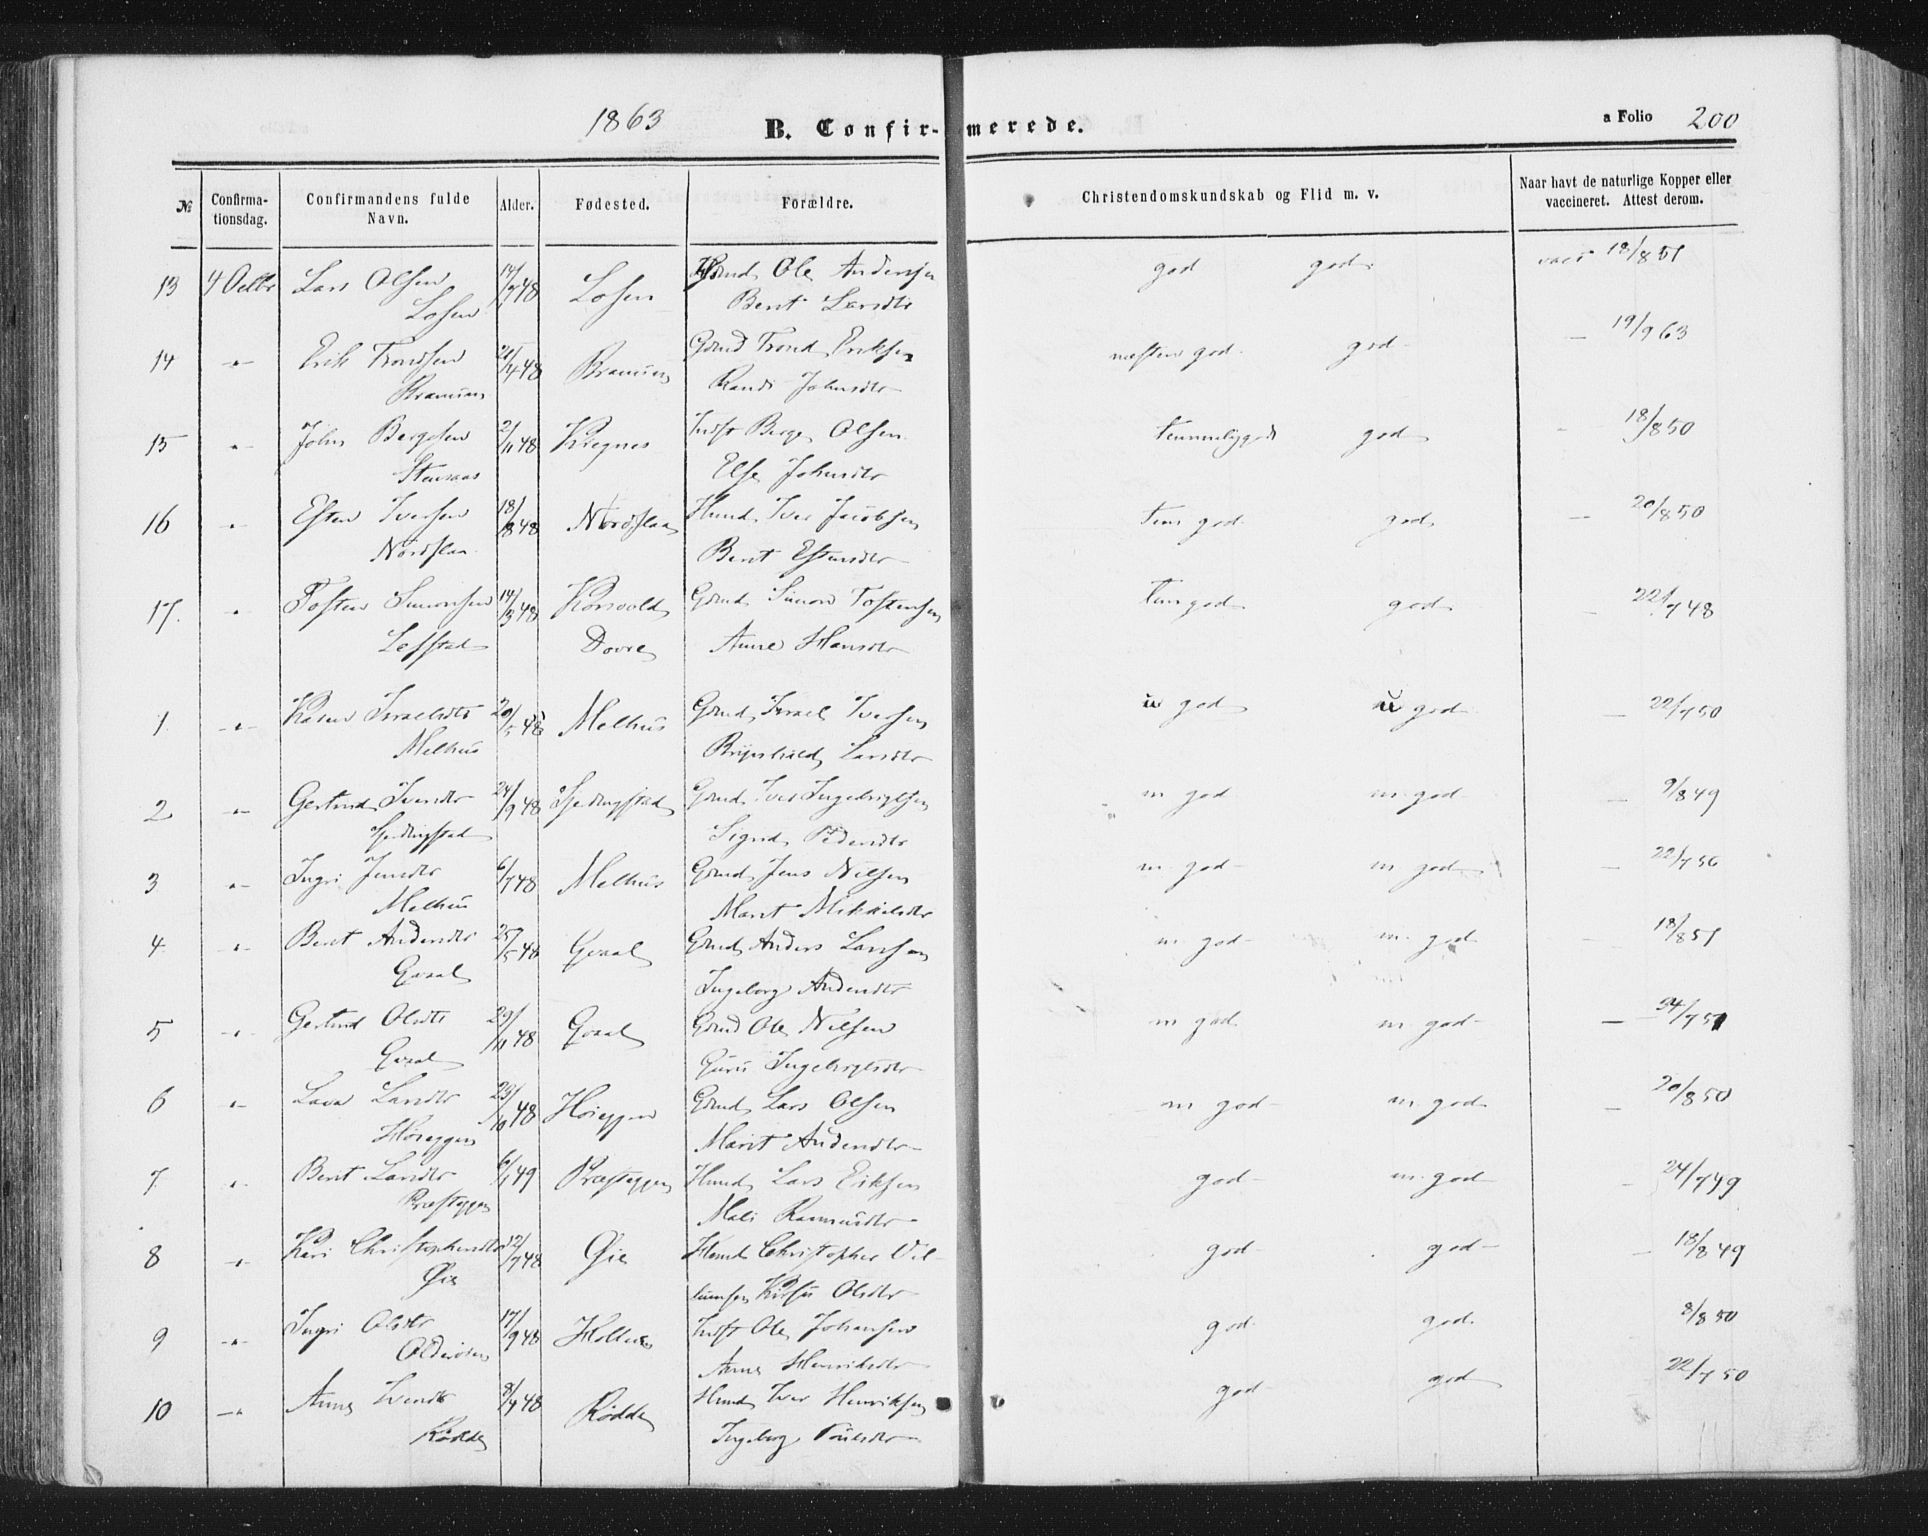 1863 B. Confir-merede. a Folio 200
№ Confirma-tionsdag. Confirmandens fulde Navn. Alder. Fødested. Forældre. Christendomskundskab og Flid m. v. Naar havt de naturlige Kopper eller vaccineret. Attest derom.
13 4 Octbr Lars Olsen 14/7 48 Losen Gmd Ole Andersen god god vacc 18/8 51
Losen Berit Larsdtr
14 -"- Erik Trondsen 21/4 48 Gmd Trond Eriksen næsten god god - 19/9 63
Randi Johnsdtr
15 -"- John Bergesen 2/11 48 Kregnes Indst Berge Olsen temmelig god god - 18/8 50
Stensaas Else Johnsdtr
16 " Esten Iversen 18/8 48 Nordslaa Hmd Iver Jacobsen tem god god - 20/8 50
Nordslaa Berit Estensdtr
17. " Tosten Simonsen 14/3 48 Korsvold Gmd Simon Tostensen tem god god - 22/7 48
Lefstad Dovre Anne Hansdtr
1. -"- Karen Israelsdtr 20/5 48 Melhus Gmd Israel Iversen m god m god - 22/7 50
Melhus Brynhild Larsdtr
2 -"- Gertrud Iversdtr 24/9 48 Gmd Iver Ingebrigtsen m god m god - 9/8 49
Sigrid Pedersdtr
3 -"- Ingri Jensdtr 6/7 48 Melhus Gmd Jens Nilsen m god m god - 22/7 50
Melhus Marit Mikkelsdtr
4. " Berit Andersdtr 25/5 48 Gvaal Gmd Anders Larssen m god m. god - 18/8 51
Gvaal Ingeborg Andersdtr
5 -"- Gertrud Olsdtr 29/11 48 Gvaal Gmd Ole Nilsen m god m god - 24/7 51
Gvaal Guru Ingebrigtsdtr
6 -"- Larsdtr 23/10 48 Høieggen Gmd Lars Olsen m god m. god - 20/8 50
Høieggen Marit Andersdtr
7. " Berit Larsdtr 6/1 49 Præsteggen Hmd Lars Eriksen god m. god - 24/7 49
Præsteggen Mali Rasmusdtr
8 -"- Kari Christophersdtr 12/7 48 Øie Hmd Christopher Vil- god god - 18/8 49
Øie Olsdtr
9 -"- Ingri Olsdtr 17/9 48 Indst Ole Johansen god god 8/8 50
Anne Henriksdtr
10 -"- Anne Iversdtr 8/7 48 Rødde Hmd Iver Henriksen god god 22/7 50
Rødde Ingeborg Poulsdtr